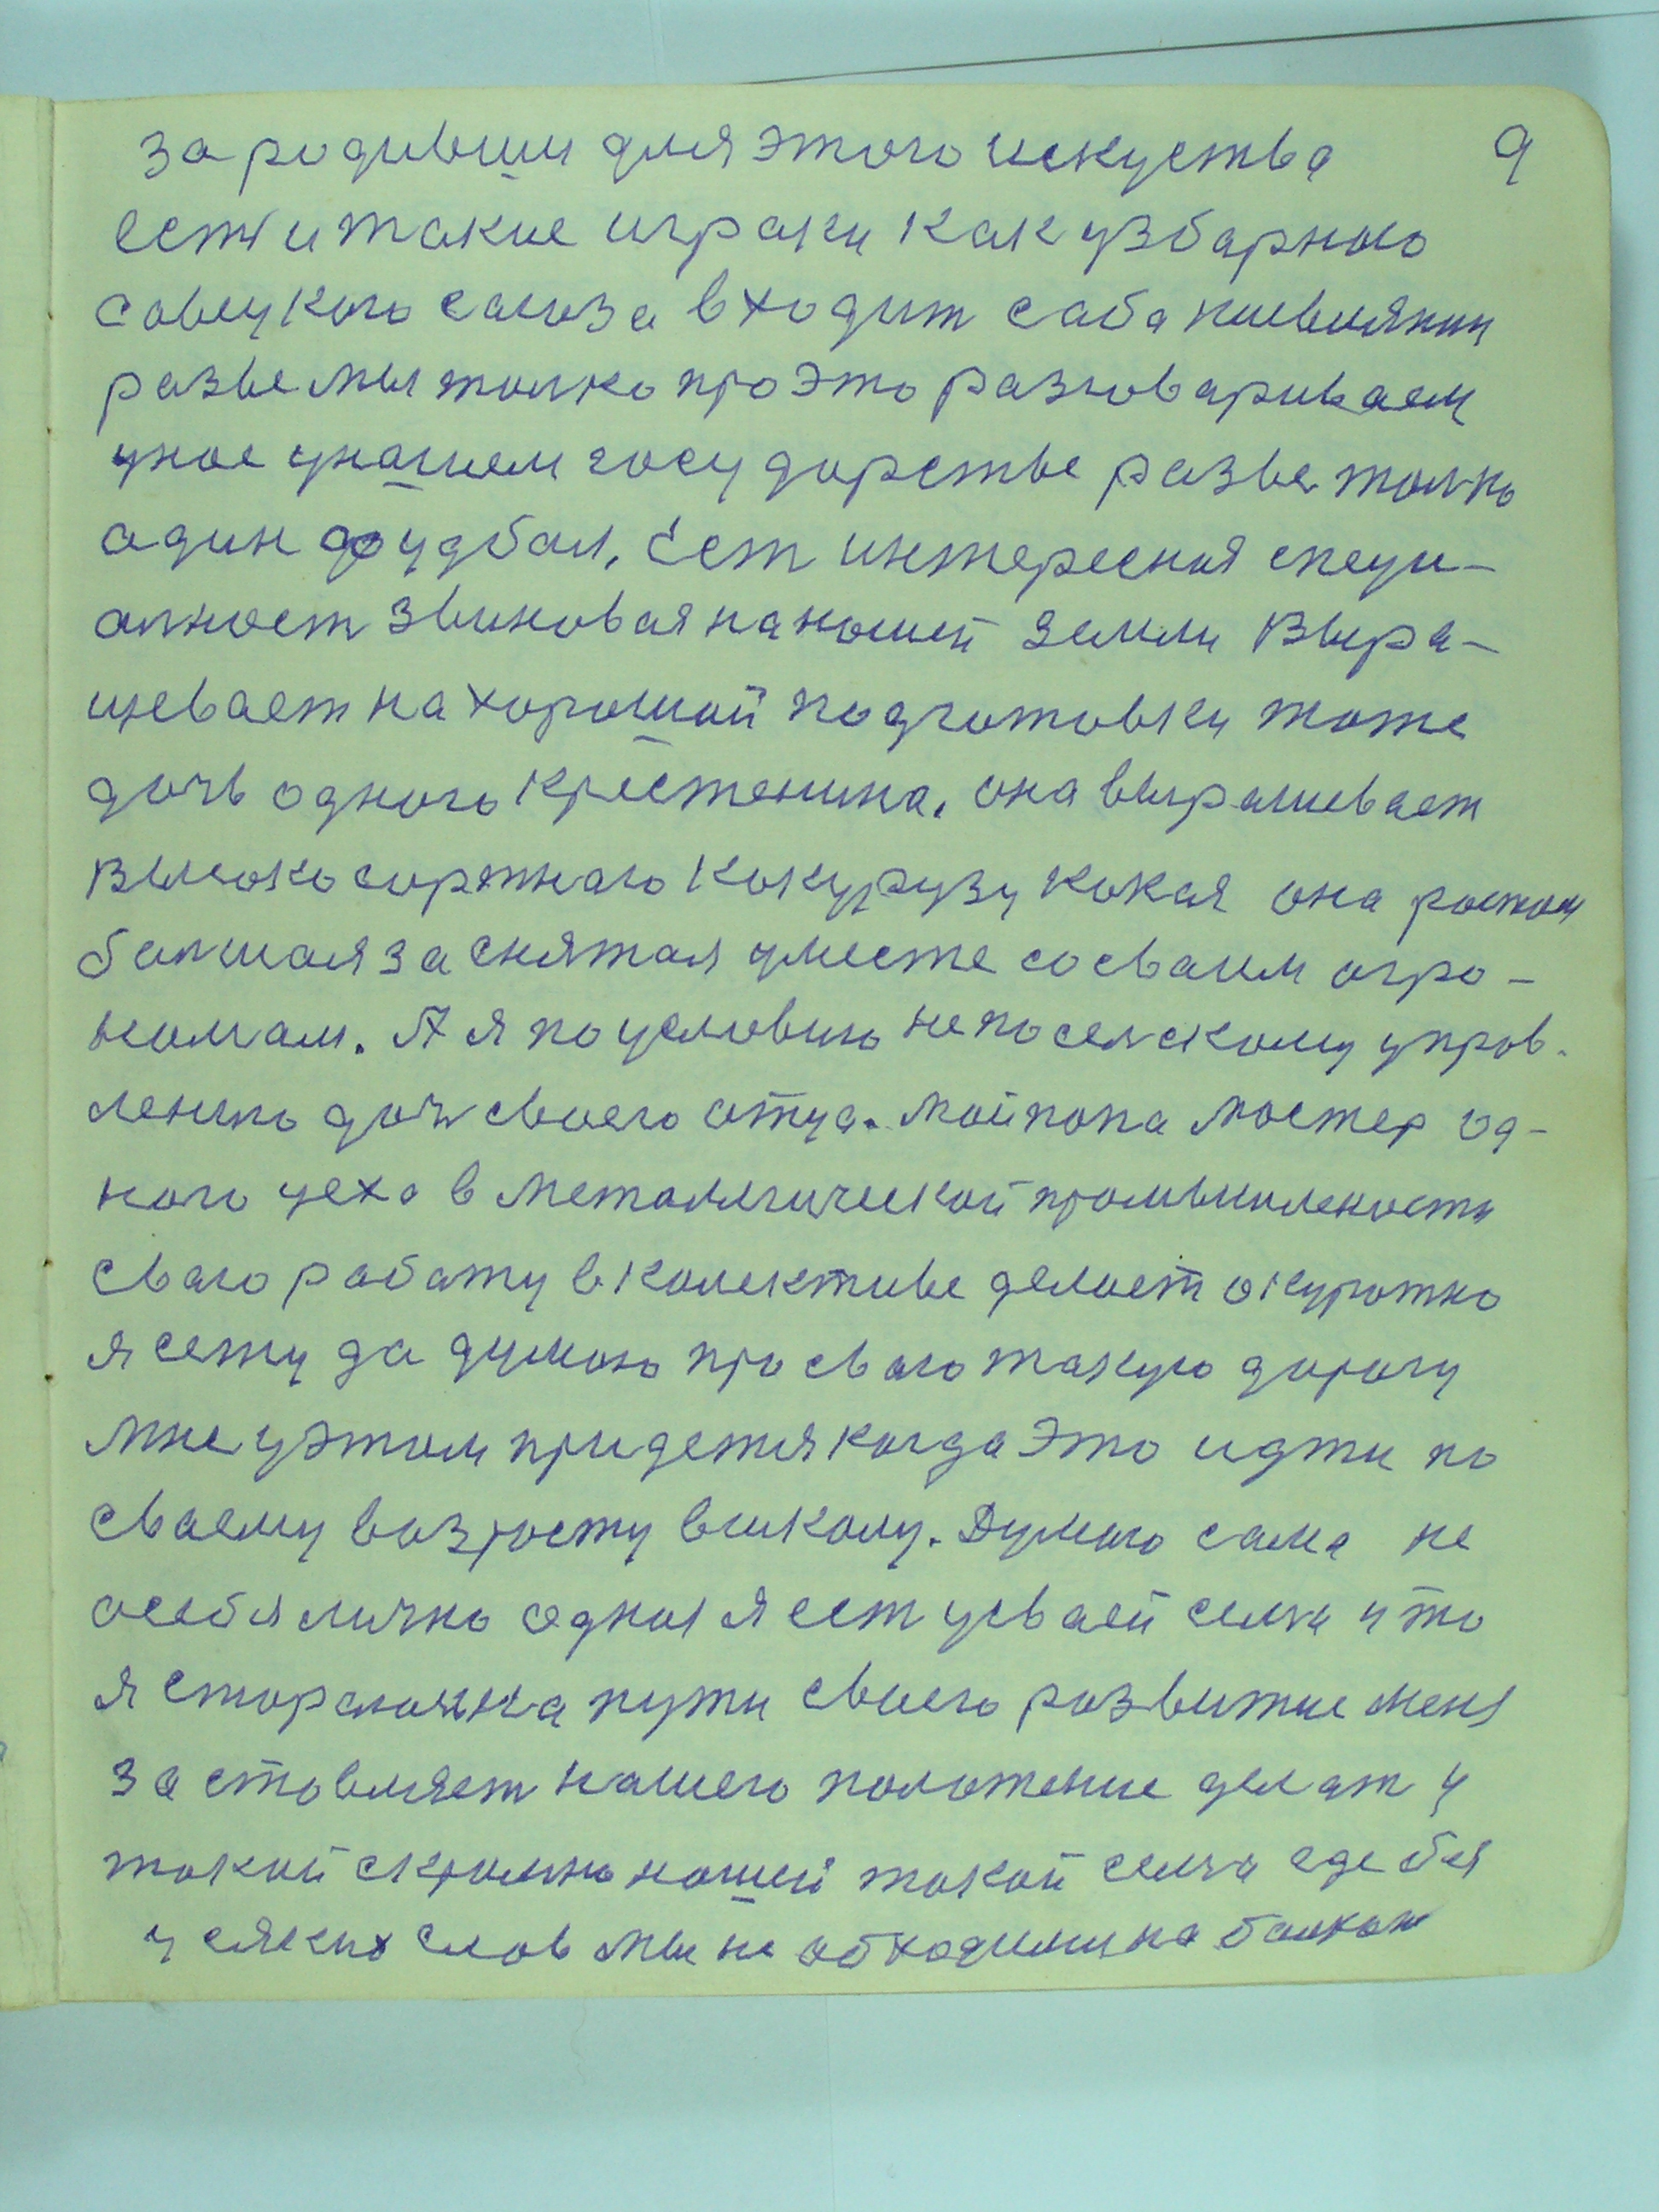 зародивши для этого искуства 9
есть и такие играки как узбарную
совецкого саюза входит саба киевляним
разве мы толко про это разговариваем
у нашем государстве разве толко
один фудбал, Ест интересная специ-
алност звиновая на нашей земли Выра-
щевает на хорошой подготовки тоже
дочь одного крестенина, она вырашевает
высоко сортнаю кокурузу кокая она ростом
балшая заснятая уместе со сваим агро-
номам. А я по условию не по селскому упров-
лению доч своего отца. Мой попа мостер од-
ного цеха в металлгической промышлености
сваю работу в колективе делает окуратно
я сежу да думою про сваю такую дорогу
мне у этом придетия когда это идти по
сваему возросту вшколу. Думаю сама не
особя лично одная я ест усваей семи что
я старслая на пути своего розвитие меня
заставляет нашего положение делат у
такой скромно нашей такой семи где бя
усяких слов мы не обходими на балкон